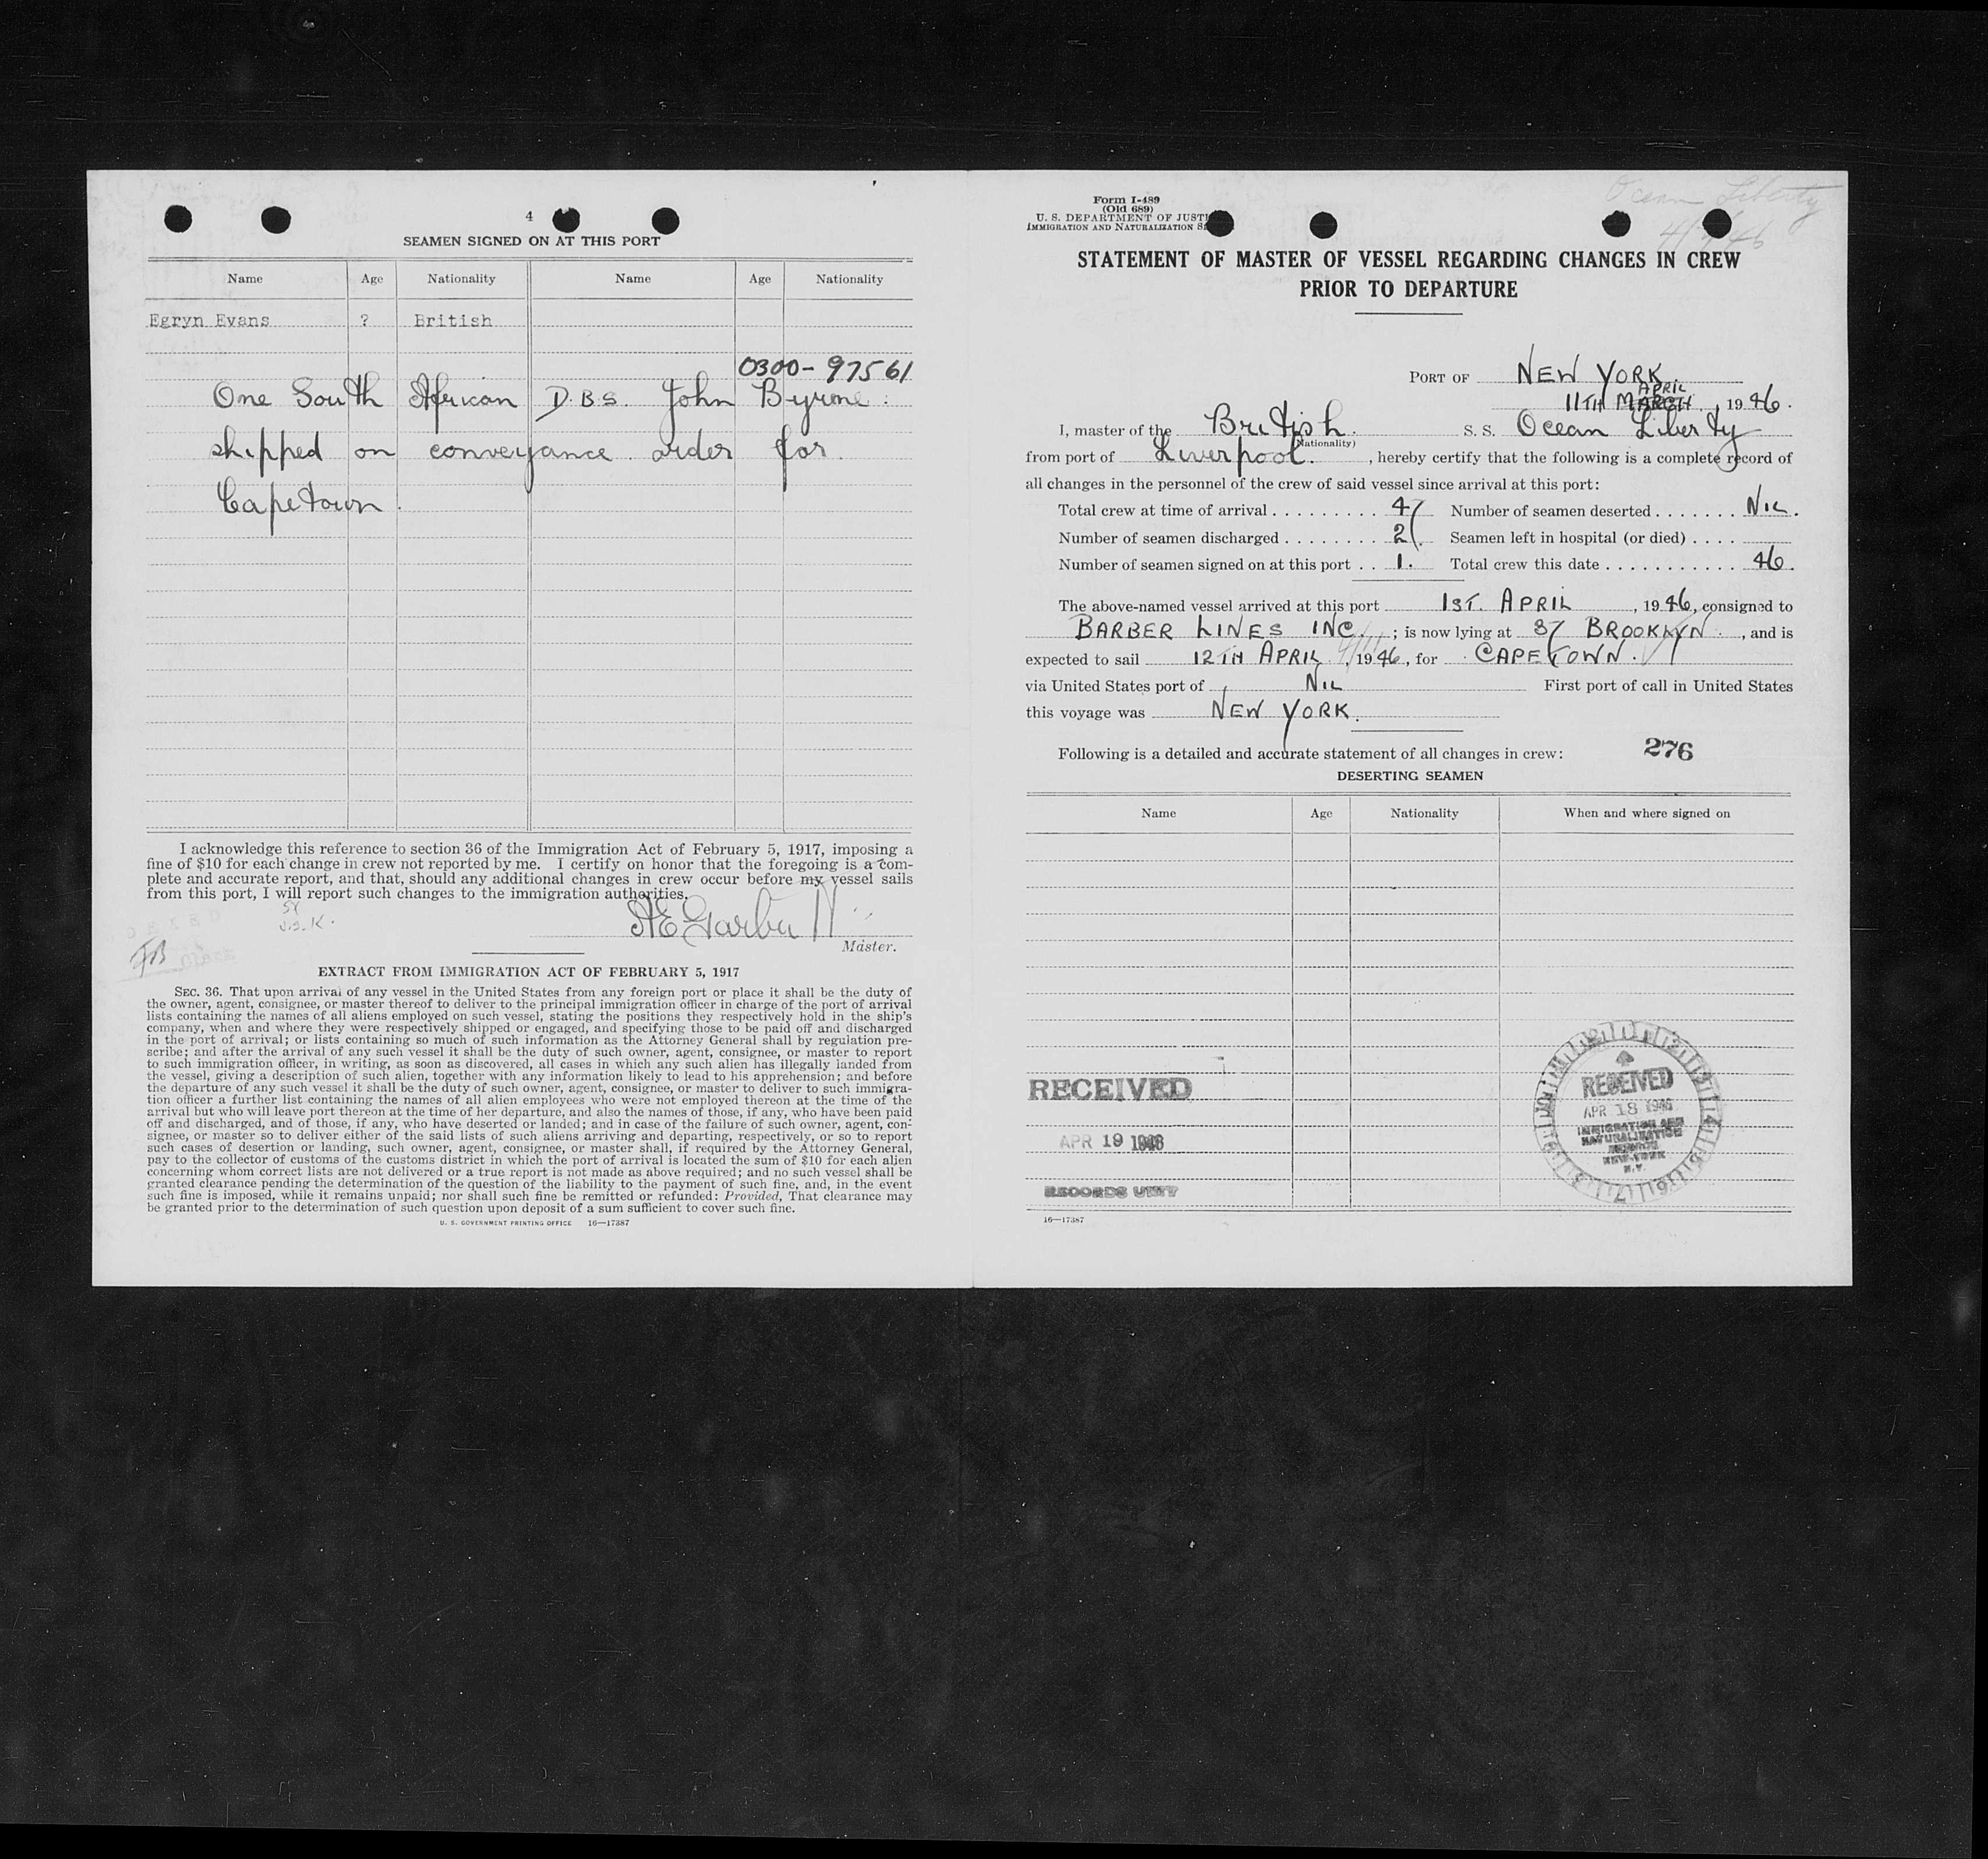 4
SEAMEN SIGNED ON AT THIS PORT
Name Age Nationality Name Age Nationality
Egryn Evans ? British
0300-97561
One South African D.B.S. John Byrne.
shipped on conveyance order for.
Capetown.
I acknowledge this reference to section 36 of the Immigration Act of February 5, 1917, imposing a
fine of $10 for each change in crew not reported by me. I certify on honor that the foregoing is a com-
plete and accurate report, and that, should any additional changes in crew occur before my vessel sails
from this port, I will report such changes to the immigration authorities.
J.S.K.
Master.
EXTRACT FROM IMMIGRATION ACT OF FEBRUARY 5, 1917
SEC. 36. That upon arrival of any vessel in the United States from any foreign port or place it shall be the duty of
the owner, agent, consignee, or master thereof to deliver to the principal immigration officer in charge of the port of arrival
lists containing the names of all aliens employed on such vessel, stating the positions they respectively hold in the ship's
company, when and where they were respectively shipped or engaged, and specifying those to be paid off and discharged
in the port of arrival; or lists containing so much of such information as the Attorney General shall by regulation pre-
scribe; and after the arrival of any such vessel it shall be the duty of such owner, agent, consignee, or master to report
to such immigration officer, in writing, as soon as discovered, all cases in which any such alien has illegally landed from
the vessel, giving a description of such alien, together with any information likely to lead to his apprehension; and before
the departure of any such vessel it shall be the duty of such owner, agent, consignee, or master to deliver to such immigra-
tion officer a further list containing the names of all alien employees who were not employed thereon at the time of the
arrival but who will leave port thereon at the time of her departure, and also the names of those, if any, who have been paid
off and discharged, and of those, if any, who have deserted or landed; and in case of the failure of such owner, agent, con-
signee, or master so to deliver either of the said lists of such aliens arriving and departing, respectively, or so to report
such cases of desertion or landing, such owner, agent, consignee, or master shall, if required by the Attorney General,
pay to the collector of customs of the customs district in which the port of arrival is located the sum of $10 for each alien
concerning whom correct lists are not delivered or a true report is not made as above required; and no such vessel shall be
granted clearance pending the determination of the question of the liability to the payment of such fine, and, in the event
such fine is imposed, while it remains unpaid; nor shall such fine be remitted or refunded: Provided, That clearance may
be granted prior to the determination of such question upon deposit of a sum sufficient to cover such fine.
U. S. GOVERNMENT PRINTING OFFICE 16—17387
Ocean Liberty
Form I-489
(Old 689)
U. S. DEPARTMENT OF JUSTI
IMMIGRATION AND NATURALIZATION SE
STATEMENT OF MASTER OF VESSEL REGARDING CHANGES IN CREW
PRIOR TO DEPARTURE
PORT OF NEW YORK
APRIL
11TH MARCH, 1946.
I, master of the British. S. S. Ocean Liberty
(Nationality)
from port of Liverpool. , hereby certify that the following is a complete record of
all changes in the personnel of the crew of said vessel since arrival at this port:
Total crew at time of arrival . . . . . . . . . 47 Number of seamen deserted . . . . . . . NIL.
Number of seamen discharged . . . . . . . . 2 Seamen left in hospital (or died) . . . .
Number of seamen signed on at this port . . 1. Total crew this date . . . . . . . . . . . 46.
The above-named vessel arrived at this port 1ST. APRIL , 1946, consigned to
BARBER LINES INC. ; is now lying at 37 BROOKLYN. , and is
expected to sail 12TH APRIL , 1946, for CAPETOWN.
via United States port of NIL First port of call in United States
this voyage was NEW YORK.
Following is a detailed and accurate statement of all changes in crew: 276
DESERTING SEAMEN
Name Age Nationality When and where signed on
RECEIVED
APR 19 1946
RECORDS UNIT
RECEIVED
APR 18 1946
IMMIGRATION AND
NATURALIZATION
SERVICE
NEW YORK
N.Y.
16—17387